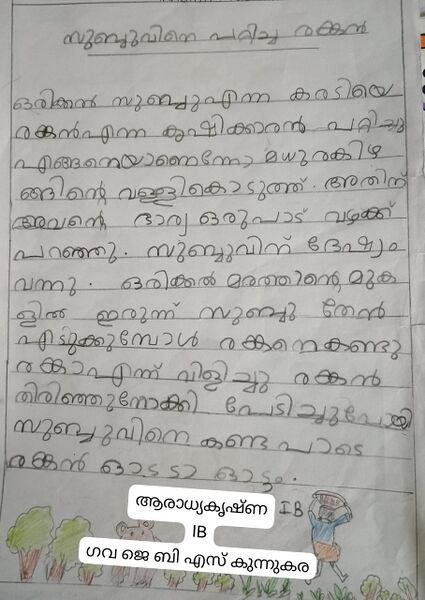 സുബ്ബുവിനെ പറ്റിച്ച രങ്കൻ
ഒരിക്കൽ സുബ്ബുഎന്ന കരടിയെ
രങ്കൻഎന്ന കൃഷിക്കാരൻ പറ്റിച്ചു
എങ്ങനെയാണെന്നോ മധുരകിഴ
ങ്ങിന്റെ വള്ളികൊടുത്ത്. അതിന്
അവന്റെ ഭാര്യ ഒരുപാട് വഴക്ക്
പറഞ്ഞു. സുബ്ബുവിന് ദേഷ്യം
വന്നു. ഒരിക്കൽ മരത്തിന്റെ മുക
ളിൽ ഇരുന്ന് സുബ്ബു തേൻ
എടുക്കുമ്പോൾ രങ്കനെകണ്ടു
രങ്കാഎന്ന് വിളിച്ചു രങ്കൻ
തിരിഞ്ഞുനോക്കി പേടിച്ചുപോയി
സുബ്ബുവിനെ കണ്ട പാടെ
രങ്കൻ ഓടടാ ഓട്ടം.
IB
ആരാധ്യകൃഷ്ണ
IB
ഗവ ജെ ബി എസ് കുന്നുകര